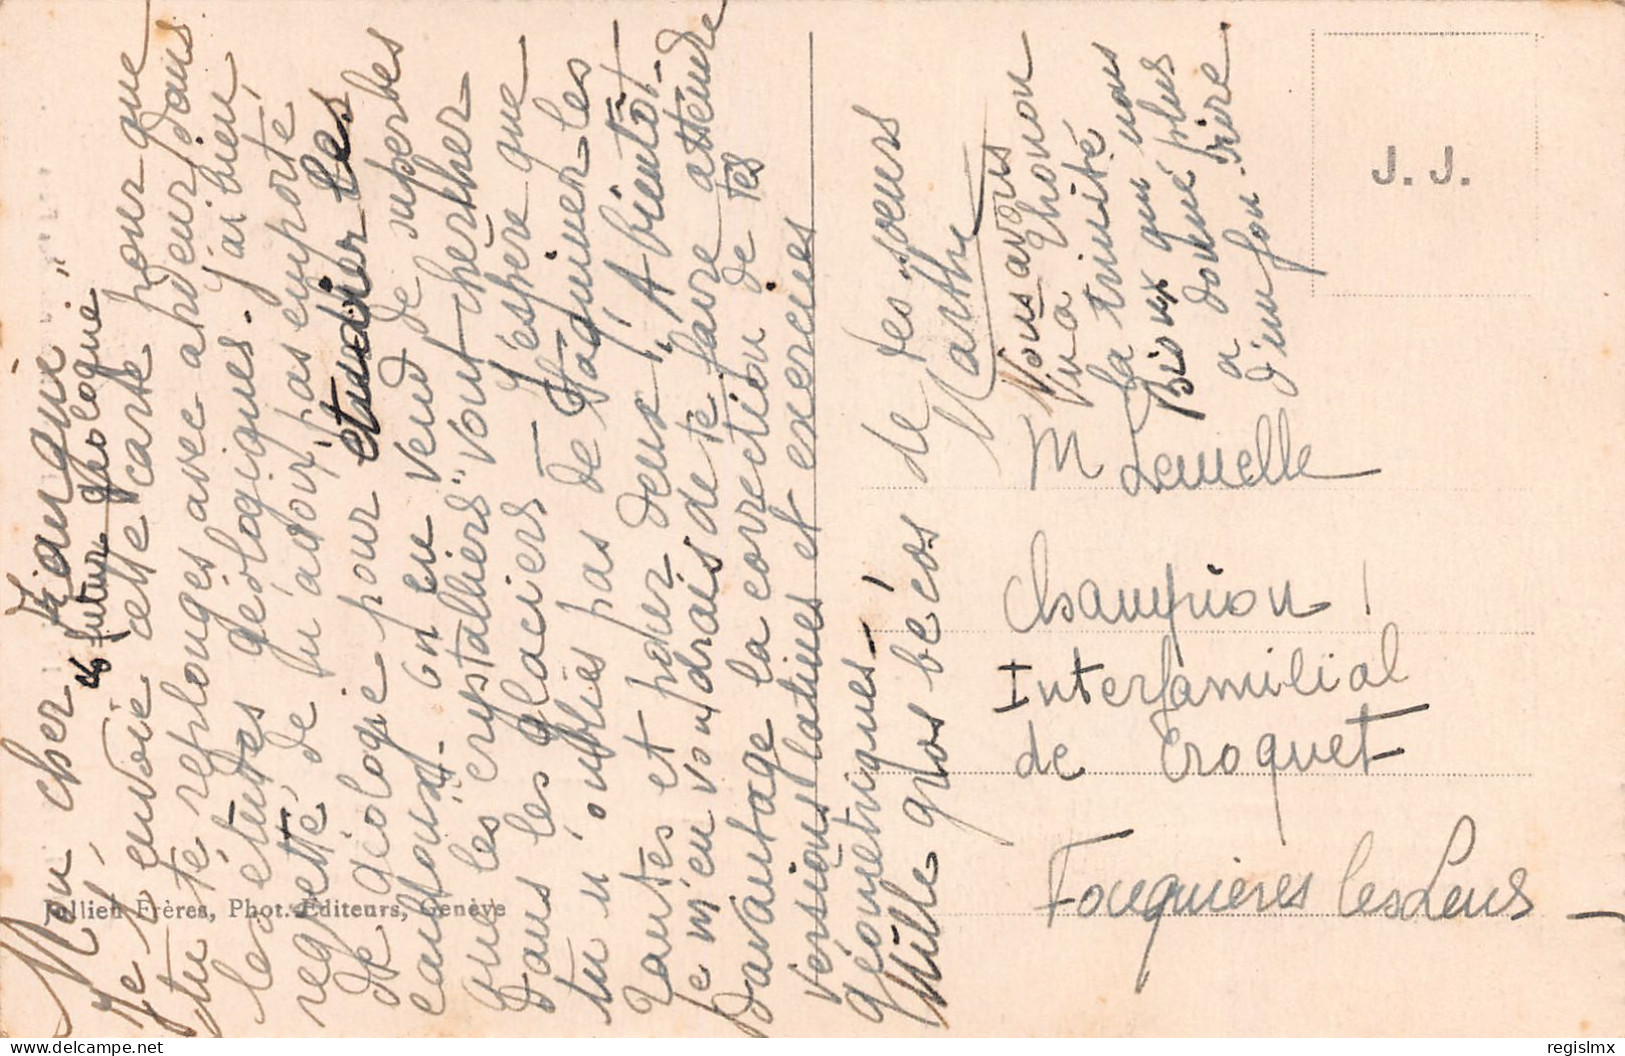 Mon cher
& futur géologue "
Je t'envoie cette carte pour que
tu te replonges avec ardeur dans
les études géologiques. j'ai bien
regretté de n'avoir pas emporté
de géologie pour etudier les
cantons. on en vend de superbes
que les "crystalliers" vont chercher
dans les glaciers J'espère que
tu n'oublies pas de taquiner les
tantes et pour deux ! A bientôt.
Je m'en voudrais de te faire attendre
davantage la correction de tes
versions latines et exercices
géométriques !
Mille gros bécos de tes soeurs
Marthe
Nous avons
vu a Thonon
la trinité
Bioux qui nous
a donné plus
d'un fou-rire.
J. J.
M Lemelle
Champion !
Interfamilial
de croquet
Fouquières les Lens
Jullien Frères, Phot. Editeurs, Genève
regislmx